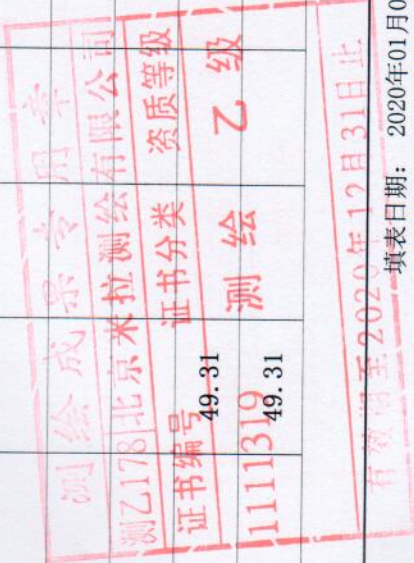 测绘成果专用章
测乙178 北京米拉测绘有限公司
证书编号 证书分类 资质等级
1111319 测绘 乙级
有效期至2020年12月31日止
49.31
49.31
填表日期： 2020年01月0